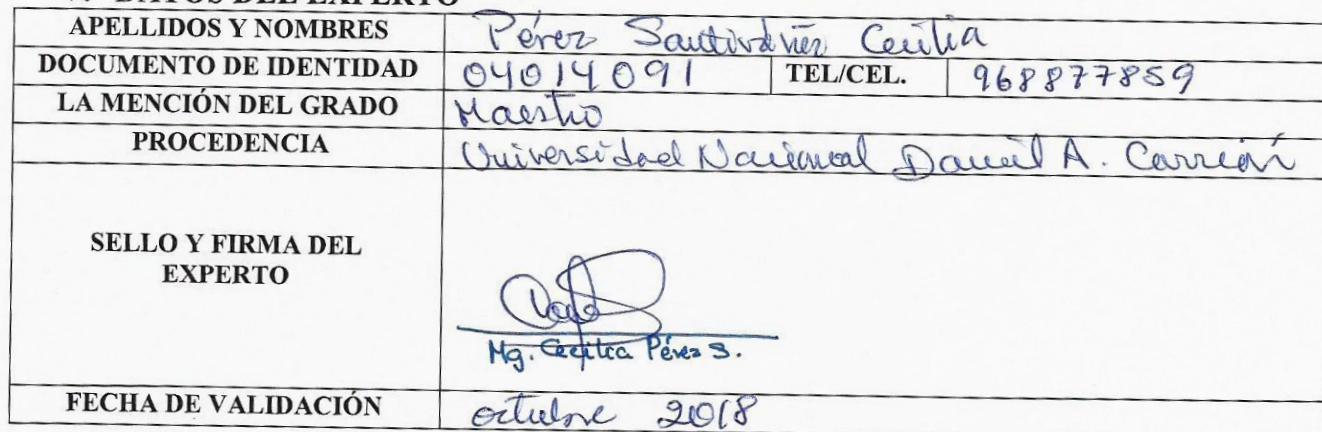 DATOS DEL EXPERTO
APELLIDOS Y NOMBRES Pérez Santivañez Cecilia
DOCUMENTO DE IDENTIDAD 04014091 TEL/CEL. 968877859
LA MENCIÓN DEL GRADO Maestro
PROCEDENCIA Universidad Nacional Daniel A. Carrión
SELLO Y FIRMA DEL
EXPERTO
Mg. Cecilia Pérez S.
FECHA DE VALIDACIÓN octubre 2018